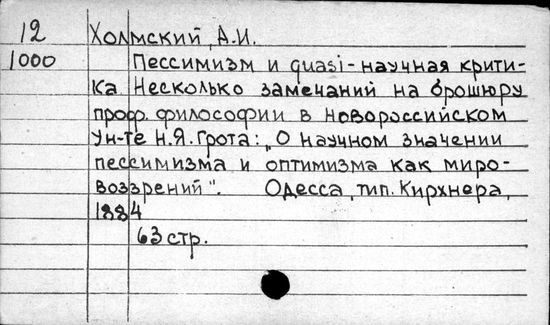 12 Холмский, А.И.
1000 Пессимизм и quasi-научная крити-
ка Несколько замечаний на брошюру
проф. философии в Новороссийском
Ун-те Н.Я. Грота: „О научном значении
пессимизма и оптимизма как миро-
воззрений". Одесса, тип. Кирхнера,
1884
63 стр.